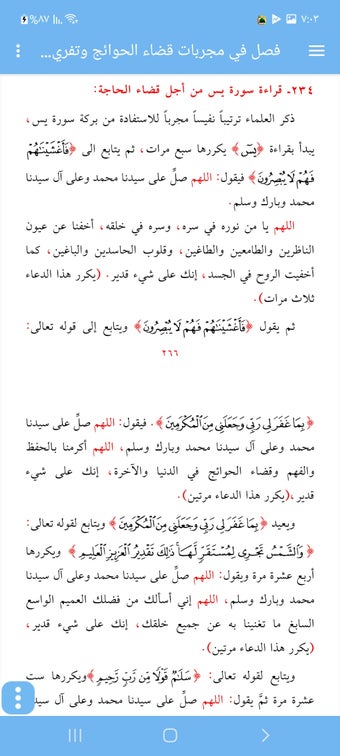 ٧:٠٣
%٨٧
فصل في مجربات قضاء الحوائج وتفري...
٢٣٤- قراءة سورة يس من أجل قضاء الحاجة:
ذكر العلماء ترتيباً نفيساً مجرباً للاستفادة من بركة سورة يس،
يبدأ بقراءة ﴿يسٓ﴾ يكررها سبع مرات، ثم يتابع الى ﴿فَأَغْشَيْنَٰهُمْ
فَهُمْ لَا يُبْصِرُونَ﴾ فيقول: اللهم صلِّ على سيدنا محمد وعلى آل سيدنا
محمد وبارك وسلم.
اللهم يا من نوره في سره، وسره في خلقه، أخفنا عن عيون
الناظرين والطامعين والطاغين، وقلوب الحاسدين والباغين، كما
أخفيت الروح في الجسد، إنك على شيء قدير. (يكرر هذا الدعاء
ثلاث مرات).
ثم يقول ﴿فَأَغْشَيْنَٰهُمْ فَهُمْ لَا يُبْصِرُونَ﴾ ويتابع إلى قوله تعالى:
٢٦٦
﴿بِمَا غَفَرَ لِى رَبِّى وَجَعَلَنِى مِنَ الْمُكْرَمِينَ﴾. فيقول: اللهم صلِّ على سيدنا
محمد وعلى آل سيدنا محمد وبارك وسلم، اللهم أكرمنا بالحفظ
والفهم وقضاء الحوائج في الدنيا والآخرة، إنك على شيء
قدير ،(يكرر هذا الدعاء مرتين).
ويعيد ﴿بِمَا غَفَرَ لِى رَبِّى وَجَعَلَنِى مِنَ الْمُكْرَمِينَ﴾ ويتابع لقوله تعالى:
﴿وَالشَّمْسُ تَجْرِى لِمُسْتَقَرٍّ لَّهَا ذَٰلِكَ تَقْدِيرُ الْعَزِيزِ الْعَلِيمِ﴾ ويكررها
أربع عشرة مرة ويقول: اللهم صلِّ على سيدنا محمد وعلى آل سيدنا
محمد وبارك وسلم، اللهم إني أسألك من فضلك العميم الواسع
السابغ ما تغنينا به عن جميع خلقك، إنك على شيء قدير،
(يكرر هذا الدعاء مرتين).
ويتابع لقوله تعالى: ﴿سَلَٰمٌ قَوْلًا مِّن رَّبٍّ رَّحِيمٍ﴾ويكررها ست
عشرة مرة ثمَّ يقول: اللهم صلِّ على سيدنا محمد وعلى آل سيدنا